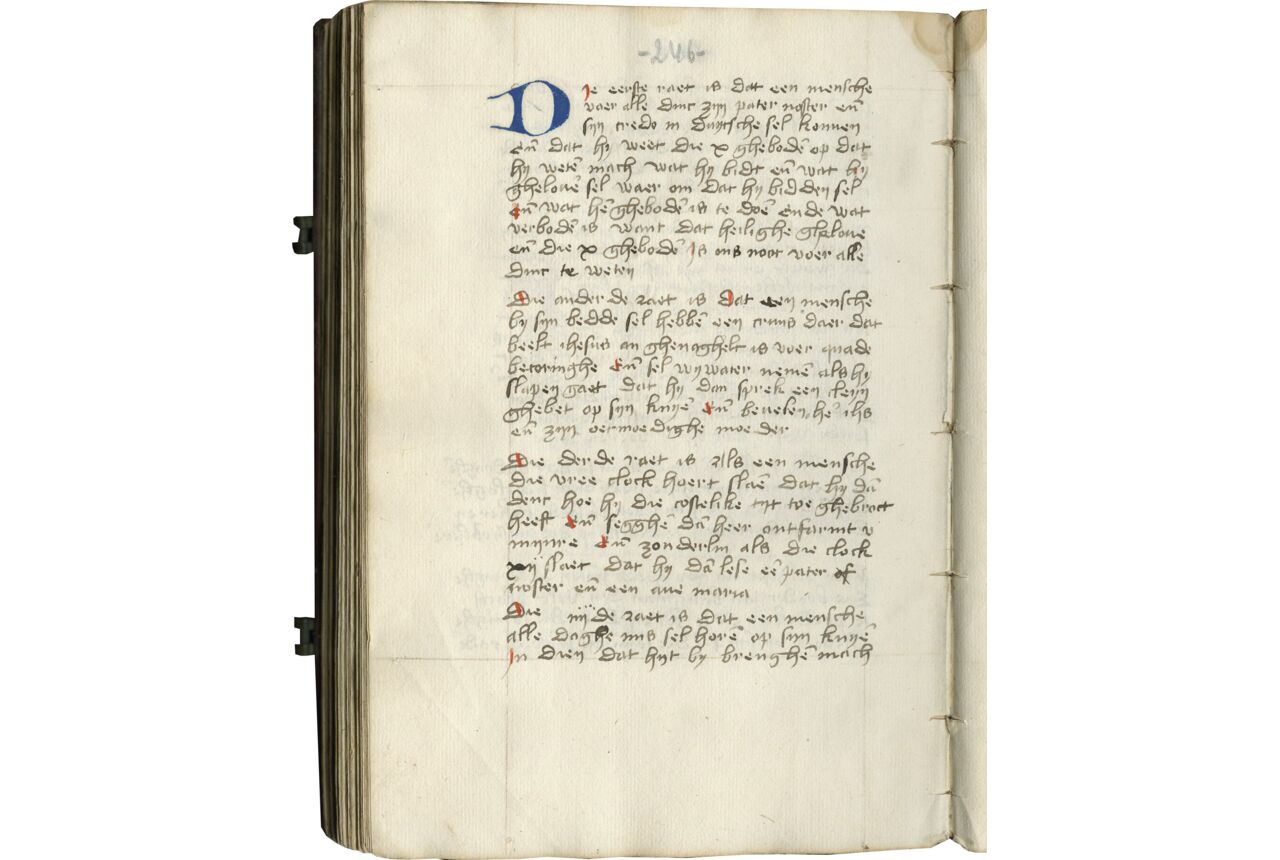 -246-
Die eerste raet is dat een mensche
voer alle dinc zijn pater noster en̄
sijn credo in duytsche sel konnen
en̄ dat hy weet die x ghebodē op dat
hy wetē mach wat hy bidt en̄ wat hy
ghelouē sel waer om dat hy bidden sel
en̄ wat hē ghebodē is te doē ende wat
verbodē is want dat heilighe gheloue
en̄ die x ghebodē is ons noot voer alle
dinc te weten
Die ander de raet is dat een mensche
by sijn bedde sel hebbē een cruus daer dat
beelt ihesus an ghenaghelt is voer quade
becoringhe en̄ sel wywater nemē als hy
slapen gaet dat hy dan sprek een cleyn
ghebet op sijn knyē en̄ beuelen hē ihs
en̄ zijn oetmoedighe moeder
Die derde raet is als een mensche
die vree clock hoert slaē dat hy dā
denc hoe hy die costelike tijt toe ghebroct
heeft en̄ segghē dā heer ontfarmt v
mijnre en̄ zonderlin als die clock
xij slaet dat hy dā lese eē pater of
noster en̄ een aue maria
Die iiijde raet is dat een mensche
alle daghe mis sel horē op sijn knyē
in dien dat hijt by brenghē mach